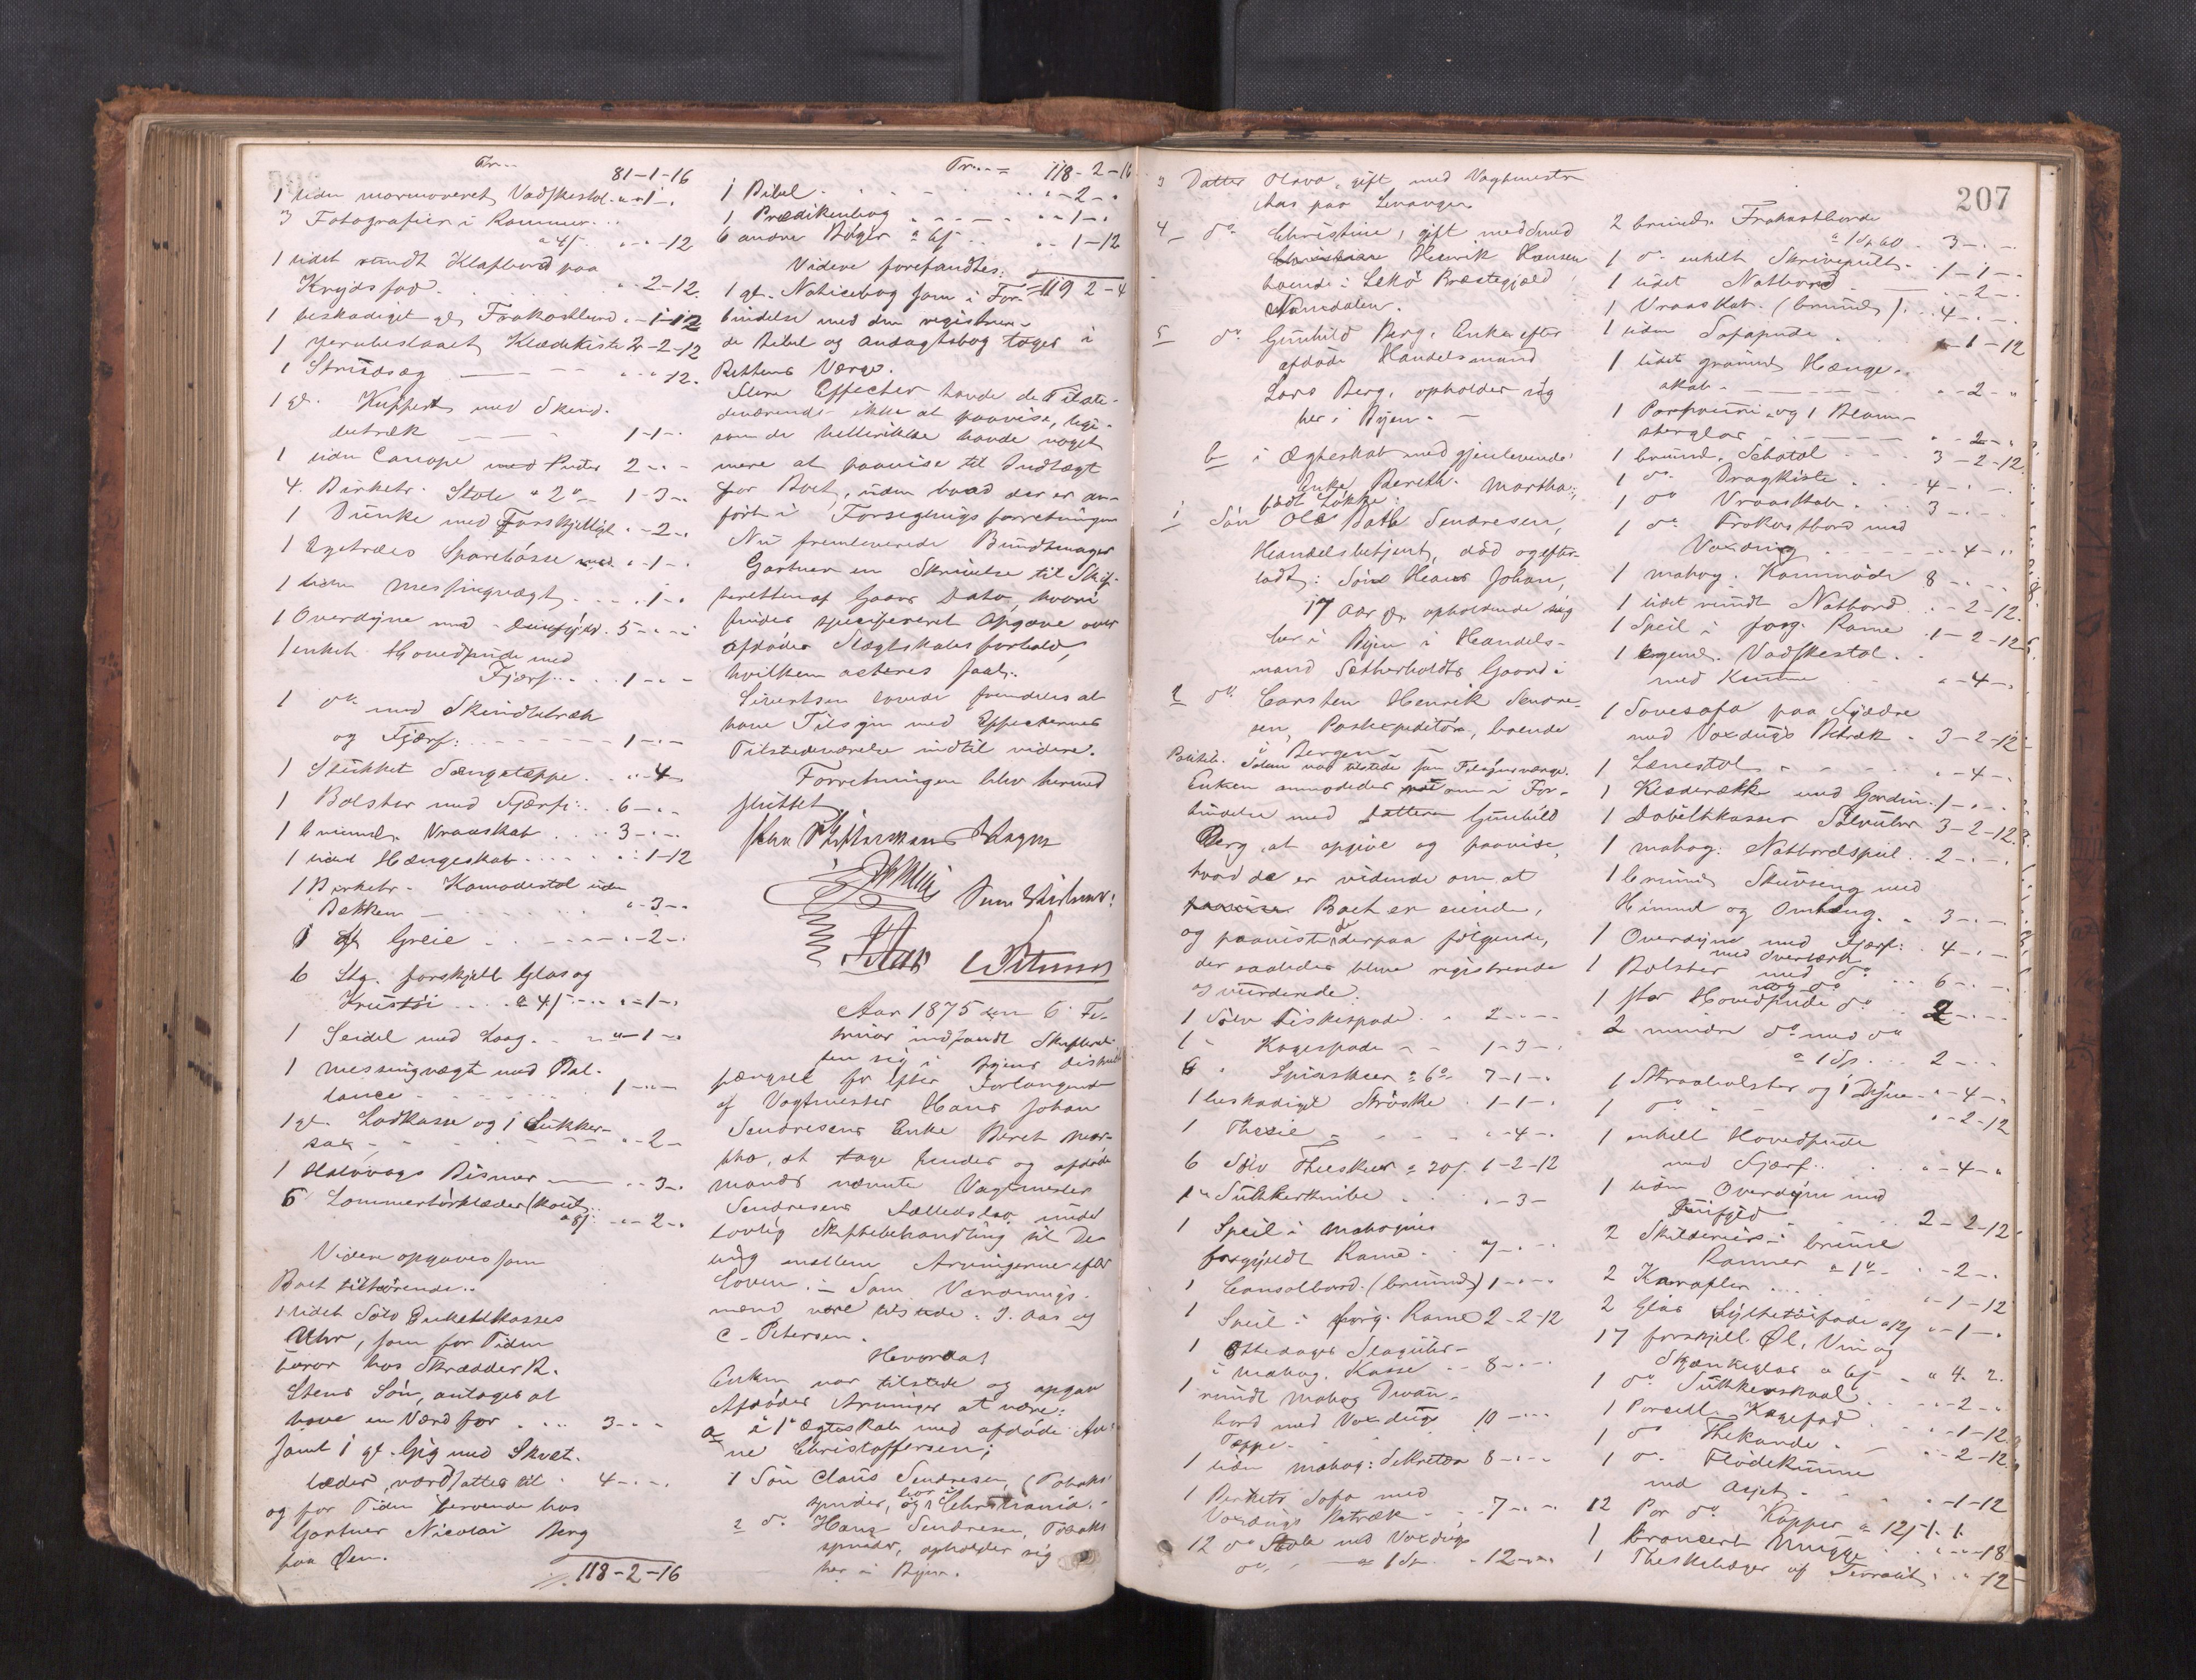 Tr...
81-1-16
1 liden marmoreret Vadskestol. " - 1 - "
3 Fotografier i Rammer...
a 4s " - " - 12
1 lidet rundt Klapbord paa
Krydsfod. " - 2-12.
1 beskadiget gl. Frokostbord " - 1-12
1 jernbeslaaet Klædekiste 2-2-12
1 Strudsæg " - " - 12.
1 gl. Kuffert med Skind-
betræk 1-1-"
1 liden Canape med Puder 2 - " -
4 Birketr. Stole " 2 " 1-3-"
1 Dunke med Forskjelligt " - 2 - "
1 Egetræes Sparebøsse " - 1 - "
1 liden Messingvægt " - 1 - "
1 Overdyne med 5 - " - "
1 enkelt Hovedpude med
Fjær 1 - " -
1 do med Skindbetræk
og Fjær: 1 - " -
1 Stukket Sængeteppe " - 4
1 Bolster med Fjær: 6 - " -
1 brunm. Vraaskab 3 - " -
1 lidet Hængeskab " - 1-12
1 Birketr. Komodestol uden
Bekken " - 3 - "
1 gl. Greie " - 2 - "
6 Stg. forskjell Glas og
Krustøi a 4s " - 1 - "
1 Seidel med Laag " - 1 - "
1 messingvægt med Bal-
lance 1 - " -
1 gl. Ladkasse og 1 Sukker-
sax " - 2 -
1 Halvvogs Bismer " - 3 - "
6 Lommetørklæder (kout.
a 8s " - 2 - "
Videre opgaves som
Boet tilhørende..
1 lidet Sølv Enkeltkasses
Uhr, som for Tiden
beror hos Skrædder R.
Stens Søn, antages at
have en Værd for 3 - " -
samt 1 gl. Gig med Skvæt-
læder, værdsattes til 4 - " -
og for Tiden beroende hos
Gartner Nicolai Berg
paa Øen.
118-2-16
Tr... = 118-2-16
1 Bibel " - 2 - "
1 Prædikenbog " - 1 - "
6 andre Bøger a 6s " 1-12
Videre forefandtes: 119 2-4
1 gl. Noticebog som i For-
bindelse med den registrere-
de Bibel og Andagtsbog toges i
Rettens Værge.
Flere Effecter havde de Tilste-
deværende ikke at paavise, lige-
som de hellerikke havde noget
mere at paavise til Indtægt
for Boet, uden hvad der er an-
ført i Forseglingsforretningen
Nu fremleverede Bundtmager
Gartner en Skrivelse til Skif-
teretten af Gaars Dato, hvori
findes specificeret Opgave over
afdødes Slægtskabsforhold,
hvilken acteres saal.
Sivertsen lovede fremdeles at
have Tilsyn med Effecternes
Tilstedeværelse indtil videre.
Forretningen blev hermed
sluttet
Aar 1875 den 6 Fe-
bruar indfandt Skifteret-
ten sig i Byens Distrikt
fængsel for efter Forlangende
af Vagtmester Hans Johan
Sendresens Enke Beret Mar-
tha, at tage under og afdøde
Mands nævnte Vagtmester
Sendresens Fælledsbo under
lovlig Skiftebehandling til De-
ling mellem Arvingerne efter
Loven. - Som Vurderings-
mænd vare tilstede: J. Aas og
C. Petersen.
Hvorda!
Enken var tilstede og opgav
Afdødes Arvinger at være:
a i 1ste Ægteskab med afdøde An-
ne Christoffersen;
1 Søn Claus Sendresen, (Tobaks-
spinder, bor i Christiania.-
2 do Hans Sendresen, Tobaks
spinder, opholder sig
her i Byen.
207
3 Datter Olava, gift med Vagtmester
Aas paa Levanger.
4 do Christine, gift med Smed
Henrik Hansen
boende i Lekø Præstegjæld
Namdalen.
5 do Gunhild Berg, Enke efter
afdøde Handelsmand
Lars Berg, opholder sig
her i Byen. -
b i Ægteskab med gjenlevende
Enke Bereth Martha,
født Løkke:
1 Søn Ole Sendresen,
Handelsbetjent, død og efter-
ladt: Søn Hans Johan,
17 Aar gl. opholdende sig
her i Byen i Handels-
mand Sætherholdts Gaard i
2 do Carsten Henrik Sendre-
sen, Postexpeditør, boende
i Bergen -
Politib. Solem var tilstede som Tilsynsværge.
Enken anmodedes om i For-
bindelse med Datteren Gunhild
Berg, at opgive og paavise,
hvad de er vidende om, at
Boet er eiende,
og paaviste de derpaa følgende,
der saaledes blive registrerede
og vurderede.
1 Sølv Fiskespade " 2 - " -
1 " Kagespade 1-3-"
6 " Spiseskeer a 6 7-1-"
1 beskadiget Strøske 1-1-"
1 Thesie " - 4 - "
6 Sølv Theskeer a 20s. 1-2-12
1 " Sukkerknibe " - 3 -
1 Speil i Mahognie
forgyldt Rame 7 - " -
1 Consolbord (brunm) 1 - " -
1 Speil i forg. Rame 2-2-12
1 Ottedages Slaguhr
i mahog. Kasse 8 - " -
1 rundt Mahog Divan-
bord med Voxdugs 10 - " -
Teppe-
1 liden mahog: Sekretær 8 - " -
1 Birketr Sofa med
Voxdugs Betræk 7 - " -
12 do Stole med Voxdugs
do, a 1 Sp. 12 - " -
2 brunm. Frokostborde
a 1 Sp 60 3 - " -
1 do enkelt Skrivepult 1-1-"
1 lidet Natbord " - 2 - "
1 Vraaskab (brunm). 4 - " -
1 liden Sofapude " - 1-12
1 lidet graamt Hænge-
skab " - 2 - "
1 Porfourie og 1 Blom-
sterglas " - 2 - "
1 brunm. Schatol 3-2-12
1 do Dragkiste 4 - " -
1 do Vraaskab 3 - " -
1 do Frokostbord med
Voxdug " - 4 - "
1 mahog. Kommode 8 - " -
1 lidet rundt Natbord " - 2-12.
1 Speil i forg. Rame 1-2-12
1 egem. Vadskestol
med Kumme " - 4 - "
1 Sovesofa paa Fjedre
med Voxdugs Betræk 3-2-12
1 Lænestol " - 4 - "
1 Klæderække med Gardin 1 - " -
1 Dobeltkasses Sølvuhr 3-2-12
1 mahog: Natbordspeil 2 - " -
1 brunm Skuvseng med
Himmel og Omhæng 3 - " -
1 Overdyne med Fjær: 4 - " -
1 Bolster med do 6 - " -
1 stor Hovedpude do 2 - " -
2 mindre do med do
a 1 Sp. 2 - " -
1 Straabolster og 1 Dyne " - 4 - "
1 do " " - 2-12
1 enkelt Hovedpude
med Fjær " - 4 - "
1 liden Overdyne med
2-2-12
2 Skilderier i brune
Rammer a 1 " - 2 - "
2 Karafler " - 1-12
2 Glas Syltetøifade a 12s " - 1 - "
17 forskjell. Øl, Vin og
Skjænkeglas a 6s " 4. 2.
1 do Sukkerskaal " - 2 - "
1 Porcell. Kagefad " - 1-12
1 do Thekande " - 2-12
1 do Flødekumme
med Asjet " - 1-12
12 Par do Kopper a 12s 1. 1.
1 Mugge " - " - 18
1 Theskebæger af " - " - 12